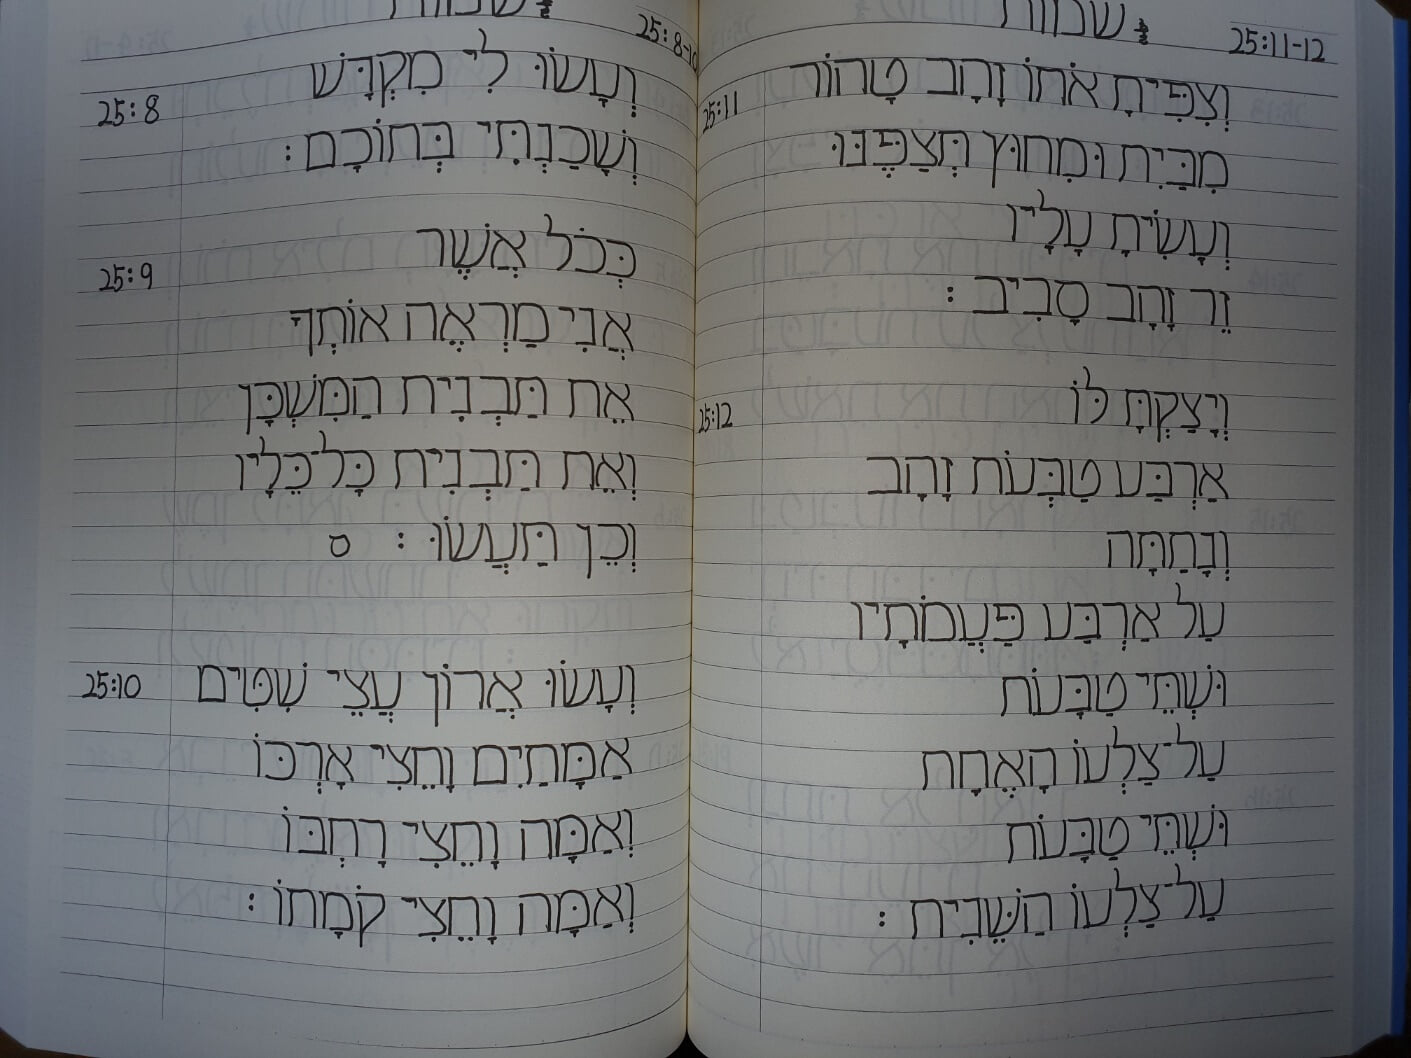 שמות 25:8-10
25:8 וְעָשׂוּ לִי מִקְדָּשׁ
וְשָׁכַנְתִּי בְּתוֹכָם :
25:9 כְּכֹל אֲשֶׁר
אֲנִי מַרְאֶה אוֹתְךָ
אֵת תַּבְנִית הַמִּשְׁכָּן
וְאֵת תַּבְנִית כָּל־כֵּלָיו
וְכֵן תַּעֲשׂוּ : ס
25:10 וְעָשׂוּ אֲרוֹן עֲצֵי שִׁטִּים
אַמָּתַיִם וָחֵצִי אָרְכּוֹ
וְאַמָּה וָחֵצִי רָחְבּוֹ
וְאַמָּה וָחֵצִי קֹמָתוֹ :
שמות 25:11-12
25:11 וְצִפִּיתָ אֹתוֹ זָהָב טָהוֹר
מִבַּיִת וּמִחוּץ תְּצַפֶּנּוּ
וְעָשִׂיתָ עָלָיו
זֵר זָהָב סָבִיב :
25:12 וְיָצַקְתָּ לּוֹ
אַרְבַּע טַבְּעֹת זָהָב
וְנָתַתָּה
עַל אַרְבַּע פַּעֲמֹתָיו
וּשְׁתֵּי טַבָּעֹת
עַל־צַלְעוֹ הָאֶחָת
וּשְׁתֵּי טַבָּעֹת
עַל־צַלְעוֹ הַשֵּׁנִית :